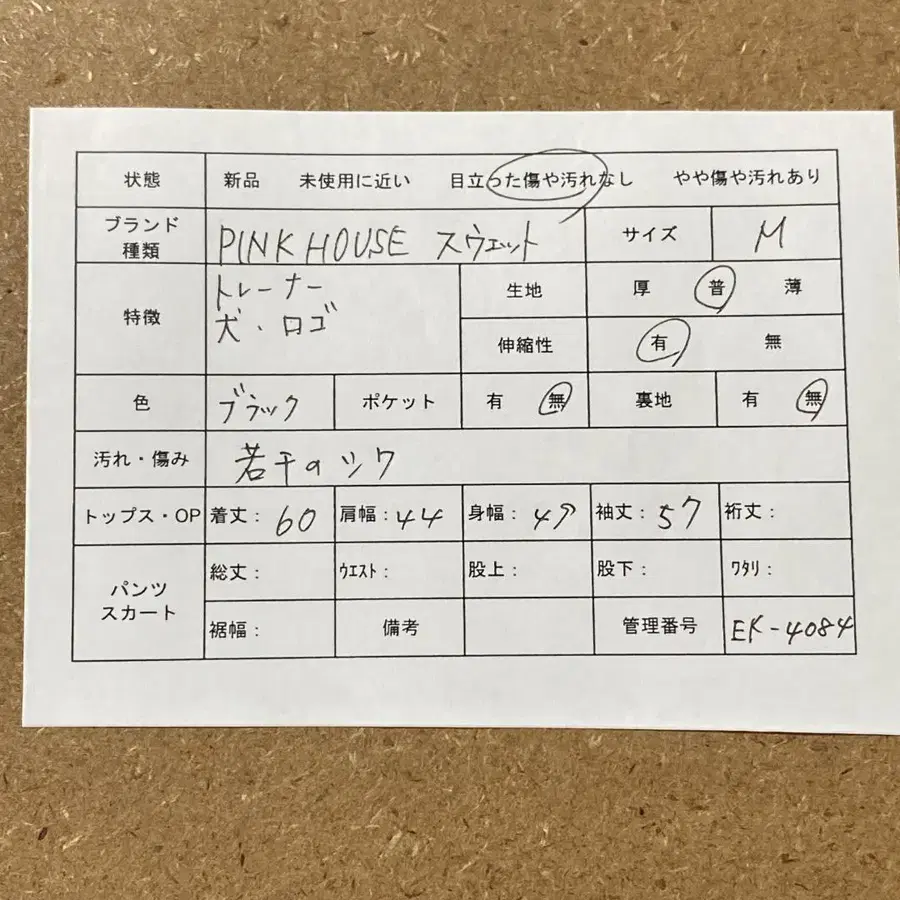 状態 新品 未使用に近い 目立った傷や汚れなし やや傷や汚れあり
ブランド
種類 PINK HOUSE スウェット サイズ M
特徴 トレーナー
犬・ロゴ
生地 厚 普 薄
伸縮性 有 無
色 ブラック ポケット 有 無 裏地 有 無
汚れ・傷み 若干のシワ
トップス・OP 着丈: 60 肩幅: 44 身幅: 49 袖丈: 57 裄丈:
パンツ
スカート
総丈: ウエスト: 股上: 股下: ワタリ:
裾幅: 備考 管理番号 EK-4084